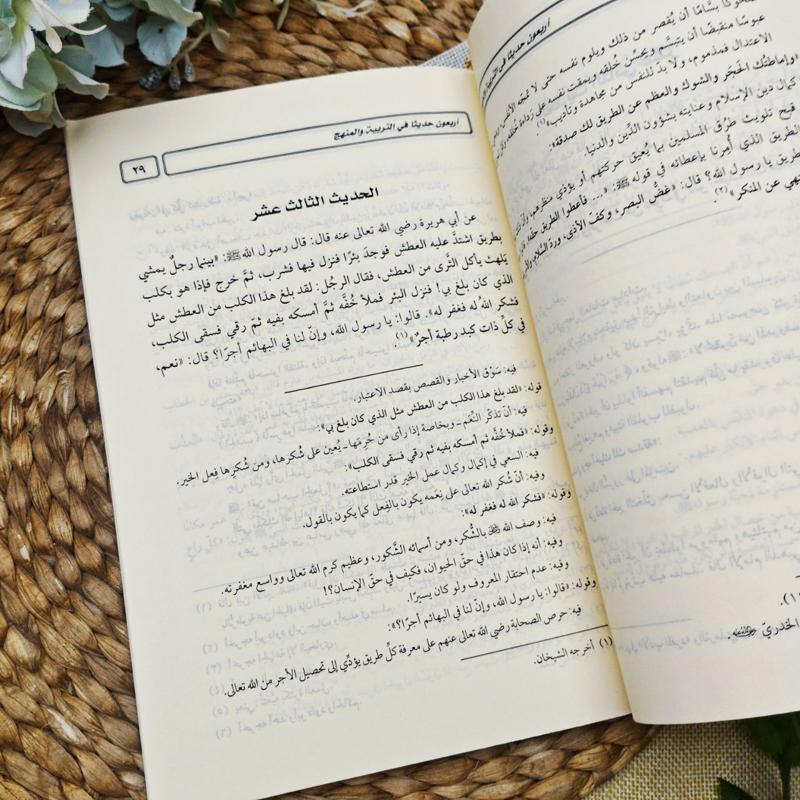 أربعون حديثا في التربية والمنهج
٢٩
الحديث الثالث عشر
عن أبي هريرة رضي الله تعالى عنه قال: قال رسول الله ﷺ: «بينما رجلٌ يمشي
بطريق اشتدّ عليه العطش فوجدَ بئرًا فنزل فيها فشرب، ثمَّ خرج فإذا هو بكلب
يَلهث يأكل الثَّرى من العطش، فقال الرجُل: لقد بلغ هذا الكلب من العطش مثل
الذي كان بلغ بي! فنزل البئر فملأ خُفَّه ثمَّ أمسكه بفيه ثمَّ رقي فسقى الكلب،
فشكر اللهُ له فغفر له». قالوا: يا رسول الله، وإنّ لنا في البهائم أجرًا؟ قال: «نعم،
في كلِّ ذات كبد رطبة أجرٌ»(١).
فيه: سَوْق الأخبار والقصص بقصد الاعتبار.
قوله: «لقد بلغ هذا الكلب من العطش مثل الذي كان بلغ بي»:
فيه: أنّ تذكّر النِّعَم ـ وبخاصة إذا رأى من حُرِمَها ـ يُعين على شُكرها، ومن شُكرِها فِعل الخير.
وقوله: «فملأ خُفَّه ثم أمسكه بفيه ثم رقي فسقى الكلب»:
فيه: السعي في إكمال وكمال عمل الخير قدر استطاعته.
وفيه: أنّ شُكر الله تعالى على نِعَمه يكون بالفِعل كما يكون بالقول.
وقوله: «فشكر الله له فغفر له»:
فيه: وصف الله ﷻ بالشُّكر، ومن أسمائه الشَّكور، وعظيم كرم الله تعالى وواسع مغفرته.
وفيه: أنه إذا كان هذا في حقّ الحيوان، فكيف في حقّ الإنسان؟!
وفيه: عدم احتقار المعروف ولو كان يسيرًا.
وقوله: «قالوا: يا رسول الله، وإنّ لنا في البهائم أجرًا؟»:
فيه: حرص الصحابة رضي الله تعالى عنهم على معرفة كلّ طريق يؤدِّي إلى تحصيل الأجر من الله تعالى.
(١) أخرجه الشيخان.
أربعون حديثا في
بسَّامًا أن يُقصر من ذلك ويلوم نفسه حتى لا
عبوسًا منقبضًا أن يتبسَّم ويحسِّن خُلقه ويمقت نفسه على رَداءة خُلقه
الاعتدال فمذموم، ولا بدّ للنفس من مجاهدة وتأديب»(١).
«وإماطتُك الحَجَر والشوك والعظم عن الطريق لك صدقة»:
كمال دين الإسلام وعنايته بشؤون الدِّين والدنيا.
قبح تلويث طرُق المسلمين بما يُعيق حركتهم أو يؤذي منظرهم،
الطريق الذي أُمرنا بإعطائه في قوله ﷺ: «... فأعطوا الطريق
الطريق يا رسول الله؟ قال: «غَضُّ البصر، وكفّ الأذى، وردّ السَّلام
عن المنكر»(٢).
الخدريّ